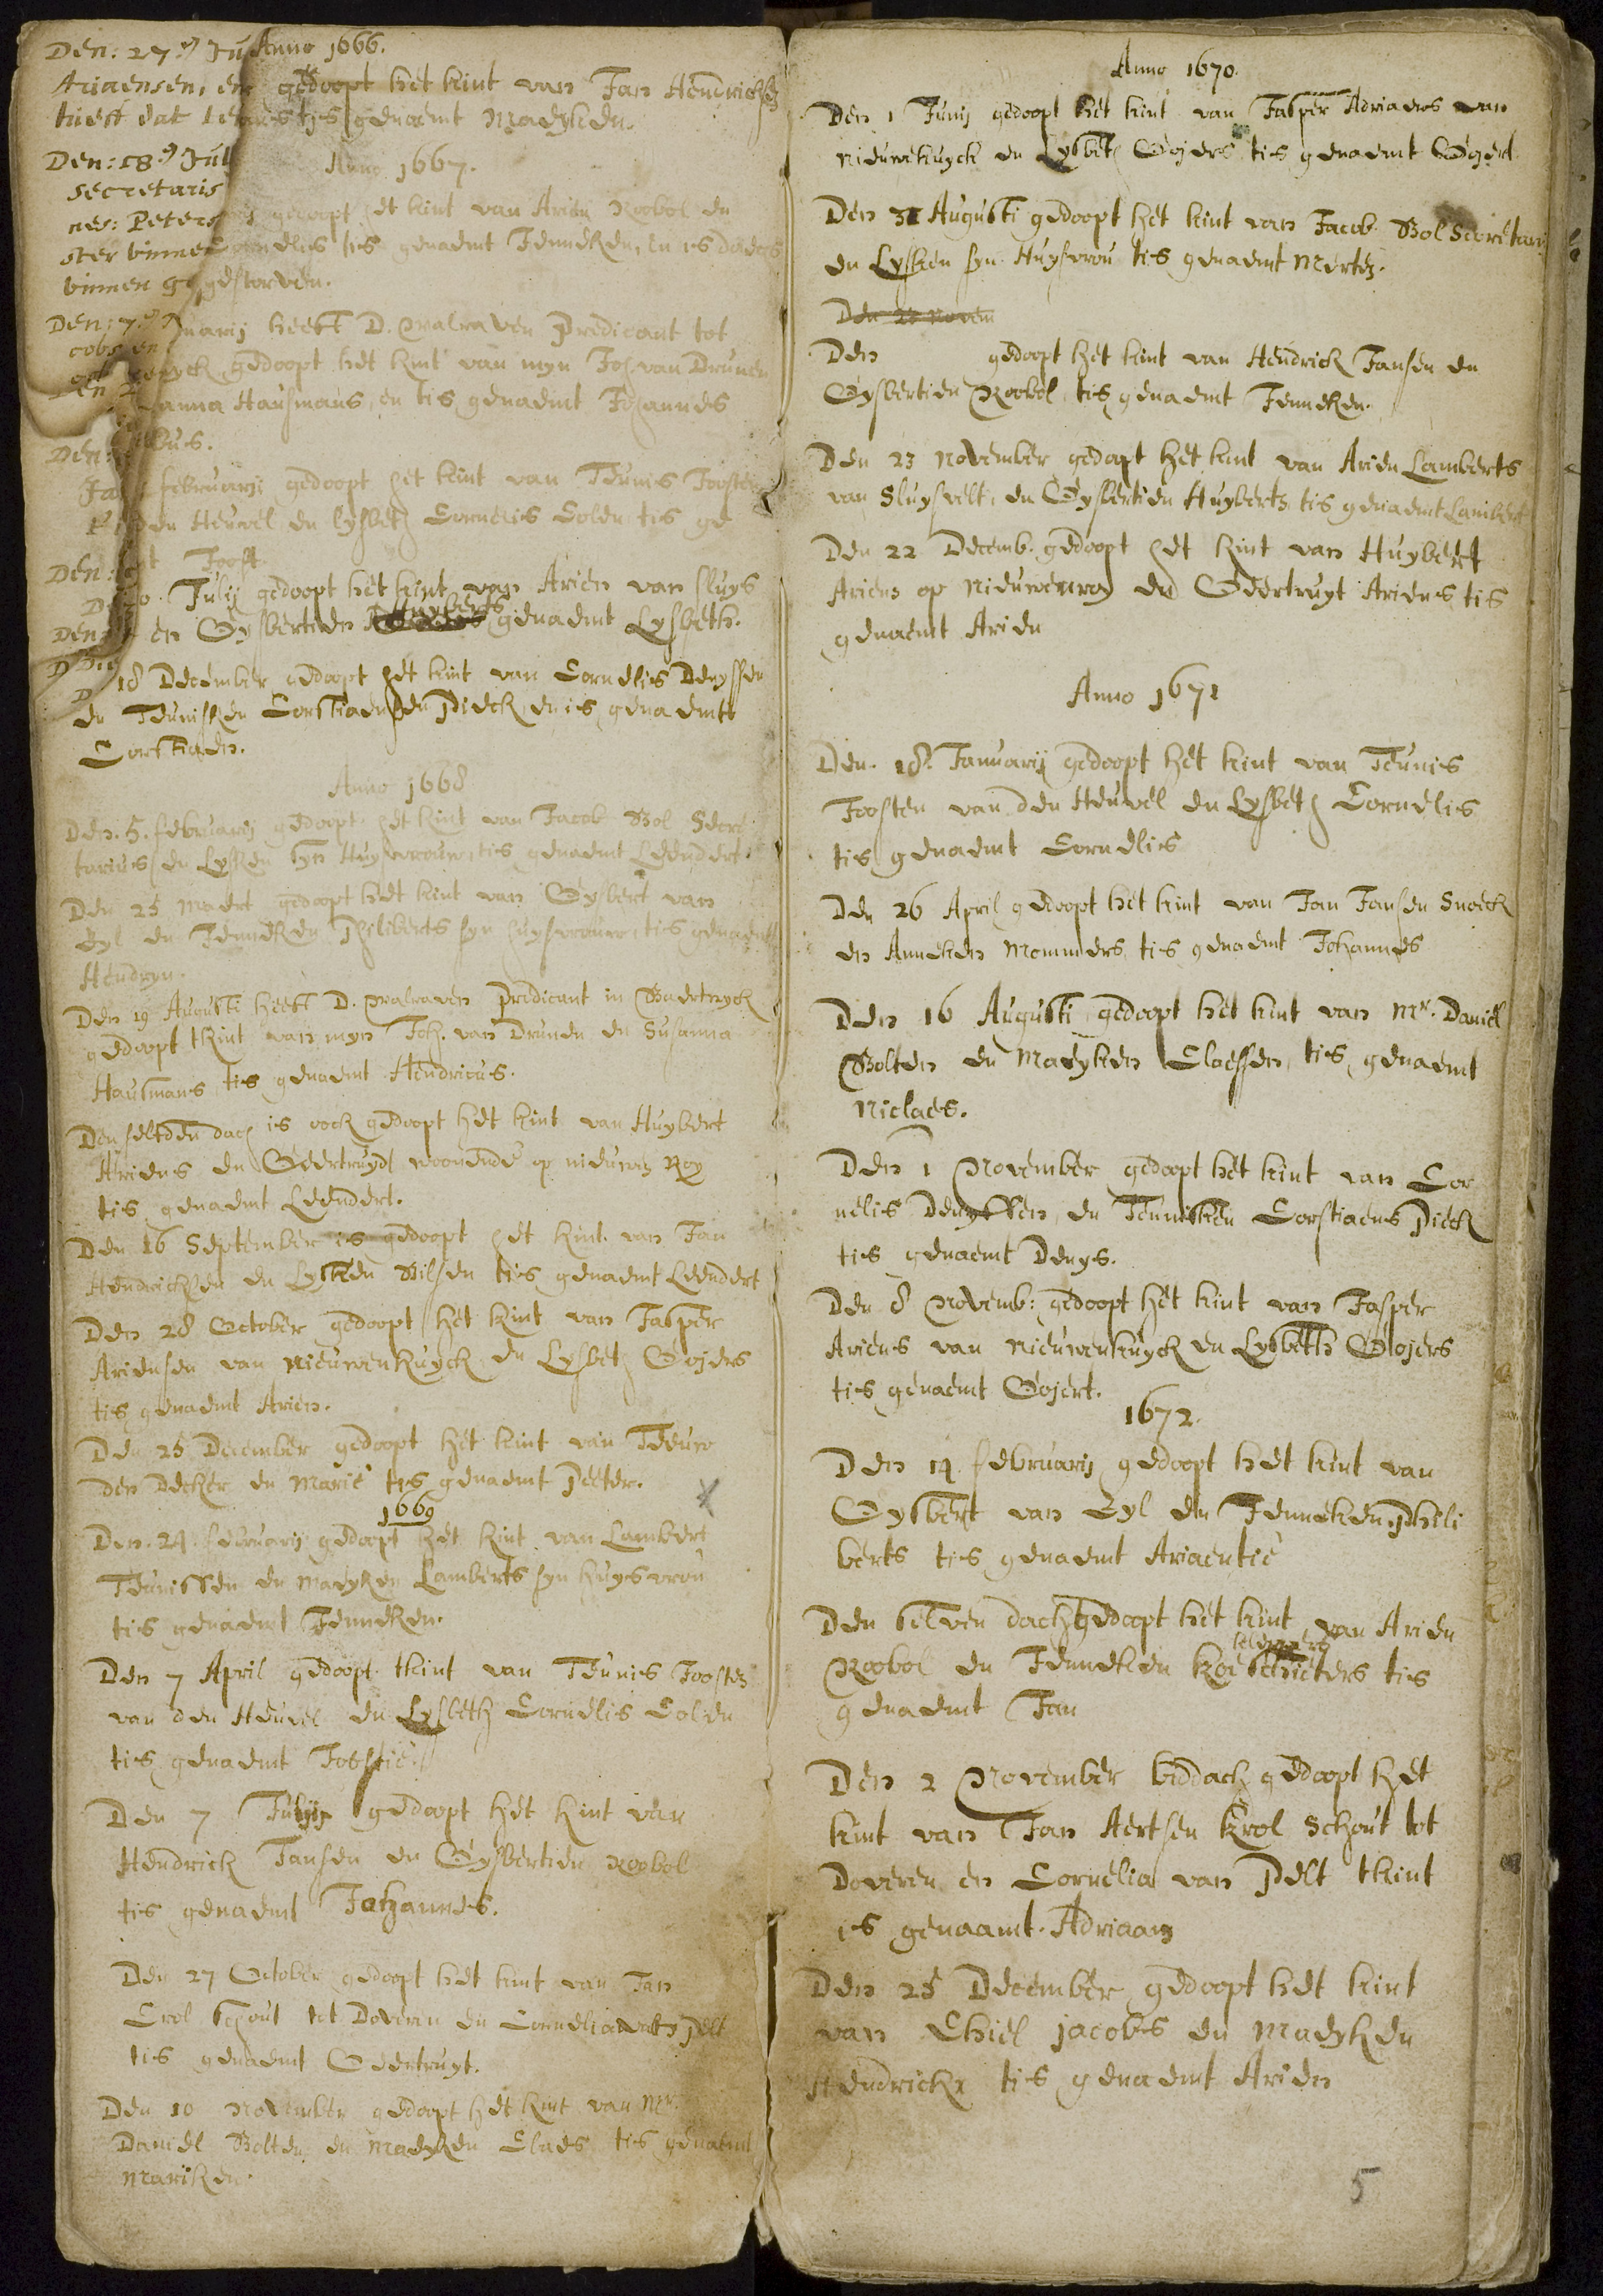 Den: 27 Ju Anno 1666.
Ariaensen, en gedoopt het kint van Jan Hendricksz
heeft dat tis genaemt Maeyken.
Den: 18 Jul Anno 1667.
secretaris
nes: Peters gedoopt het kint van Arien Roobol en
ster binnen Cornelis tis genaemt Jenneken, en is
binnen gestorven.
Den: 7 nuarij heeft D. Walraven Predicant tot
cobs en wyck gedoopt het kint van myn Joh van Drunen
Den anna Hausmans, en tis genaemt Johannes
Den:
Ja februarij gedoopt het kint van Teunis Joosten
den Heuvel en lysbeth Cornelis Colen tis ge
Den: t Joost.
Julij gedoopt het kint van Arien van sluys
Huyberts
Den en Gysbertien genaemt Lysbeth.
18 December gedoopt het kint van Cornelis Denyssen
en Teunisken Corstiaensen Pieck en is genaemt
Corstiaen.
Anno 1668
Den. 5. februarij gedoopt het kint van Jacob Bol Secre
tarius en Lysken syn Huysvrouw, tis genaemt Leendert.
Den 25 Maert gedoopt het kint van Gysbert van
Eyl en Jenneken Philiberts syn huysvrouw, tis genaemt
Hendryn.
Den 19 Augusti heeft D. Walraven predicant in Baerdwyck
gedoopt tkint van myn Joh. van Drunen en Susanna
Hausmans tis genaemt Hendricus.
Den selfden dach is oock gedoopt het kint van Huybert
Ariens en Geertruyd woonende op nieuwe Roy
tis genaemt Leendert.
Den 16 September is gedoopt het kint van Jan
Hendricksen en Lysken Bilsen tis genaemt Leendert
Den 28 October gedoopt het kint van Jasper
Ariensen van Nieuwenkuyck en Lysbeth Gojers
tis genaemt Arien.
Den 25 December gedoopt het kint van Teeuw
den Decker en Marie tis genaemt Peeter.
1669
Den. 24. februarij gedoopt het kint van Lambert
Teunissen en Maeyken Lamberts syn huysvrou
tis genaemt Jenneken.
Den 7 April gedoopt tkint van Teunis Joosten
van den Heuvel en Lysbeth Cornelis Colen
tis genaemt Joostie.
Den 7 Julij gedoopt het kint van
Hendrick Jansen en Gysbertien Roobol
tis genaemt Johannes.
Den 27 October gedoopt het kint van Jan
Crol schout tot Doveren en Cornelia van Pelt
tis genaemt Geertruyt.
Den 10 November gedoopt het kint van Mr.
Daniel Bolten en Maeyken Claes tis genaemt
Mariken.
Anno 1670.
Den 1 Junij gedoopt het kint van Jasper Adriaens van
Nieuwekuyck en Lysbeth Gojers tis genaemt Gojert
Den 31 Augusti gedoopt het kint van Jacob Bol Secretari
en Lysken syn Huysvrou tis genaemt Merten.
Den 23 Novem
Den gedoopt het kint van Hendrick Jansen en
Gysbertien Roobol tis genaemt Jenneken.
Den 23 November gedoopt het kint van Arien Lamberts
van Sluysvelt, en Gysbertien Huyberts tis genaemt Lambert
Den 22 Decemb. gedoopt het kint van Huybert
Ariens op Nieuweroy en Geertruyt Ariens tis
genaemt Arien
Anno 1671
Den. 18. Januarij gedoopt het kint van Teunis
Joosten van den Heuvel en Lysbeth Cornelis
tis genaemt Cornelis
Den 26 April gedoopt het kint van Jan Jansen Snoeck
en Anneken Mommers tis genaemt Johannes
Den 16 Augusti gedoopt het kint van Mr. Daniel
Bolten en Maeyken Claessen, tis genaemt
Niclaes.
Den 1 November gedoopt het kint van Cor
nelis Denyssen en Teunisken Corstiaens Pieck
tis genaemt Denys.
Den 8 Novemb: gedoopt het kint van Jasper
Ariens van Nieuwenkuyck en Lysbeth Gojers
tis genaemt Gojert.
1672.
Den 14 februarij gedoopt het kint van
Gysbert van Eyl en Jenneken Phili
berts tis genaemt Ariaentie
Den selven dach gedoopt het kint van Arien
Roobol en Jenneken Koeschieters tis
genaemt Jan
Den 2 November biddach gedoopt het
kint van Jan Aertsen Krol Schout tot
Doveren en Cornelia van Pelt tkint
is genaamt Adriaan
Den 25 December gedoopt het kint
van Chiel jacobs en Maeyken
Hendrickx tis genaemt Arien
5